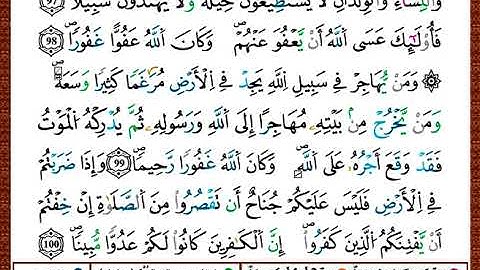 وَالنِّسَآءِ وَالْوِلْدَانِ لَا يَسْتَطِيعُونَ حِيلَةً وَلَا يَهْتَدُونَ سَبِيلًا ﴿97﴾
فَأُوْلَٰٓئِكَ عَسَى اَللَّهُ أَنْ يَّعْفُوَ عَنْهُمْ وَكَانَ اَللَّهُ عَفُوًّا غَفُورًا ﴿98﴾
۞ وَمَنْ يُّهَاجِرْ فِي سَبِيلِ اِللَّهِ يَجِدْ فِي اِلْأَرْضِ مُرَٰغَمًا كَثِيرًا وَسَعَةً
وَمَنْ يَّخْرُجْ مِنۢ بَيْتِهِۦ مُهَاجِرًا إِلَى اَللَّهِ وَرَسُولِهِۦ ثُمَّ يُدْرِكْهُ اُلْمَوْتُ
فَقَدْ وَقَعَ أَجْرُهُۥ عَلَى اَللَّهِ وَكَانَ اَللَّهُ غَفُورًا رَّحِيمًا ﴿99﴾ وَإِذَا ضَرَبْتُمْ
فِي اِلْأَرْضِ فَلَيْسَ عَلَيْكُمْ جُنَاحٌ أَن تَقْصُرُواْ مِنَ اَلصَّلَوٰةِ إِنْ خِفْتُمْ
أَنْ يَّفْتِنَكُمُ اُلَّذِينَ كَفَرُوٓاْ إِنَّ اَلْكَٰفِرِينَ كَانُواْ لَكُمْ عَدُوًّا مُّبِينًا ﴿100﴾